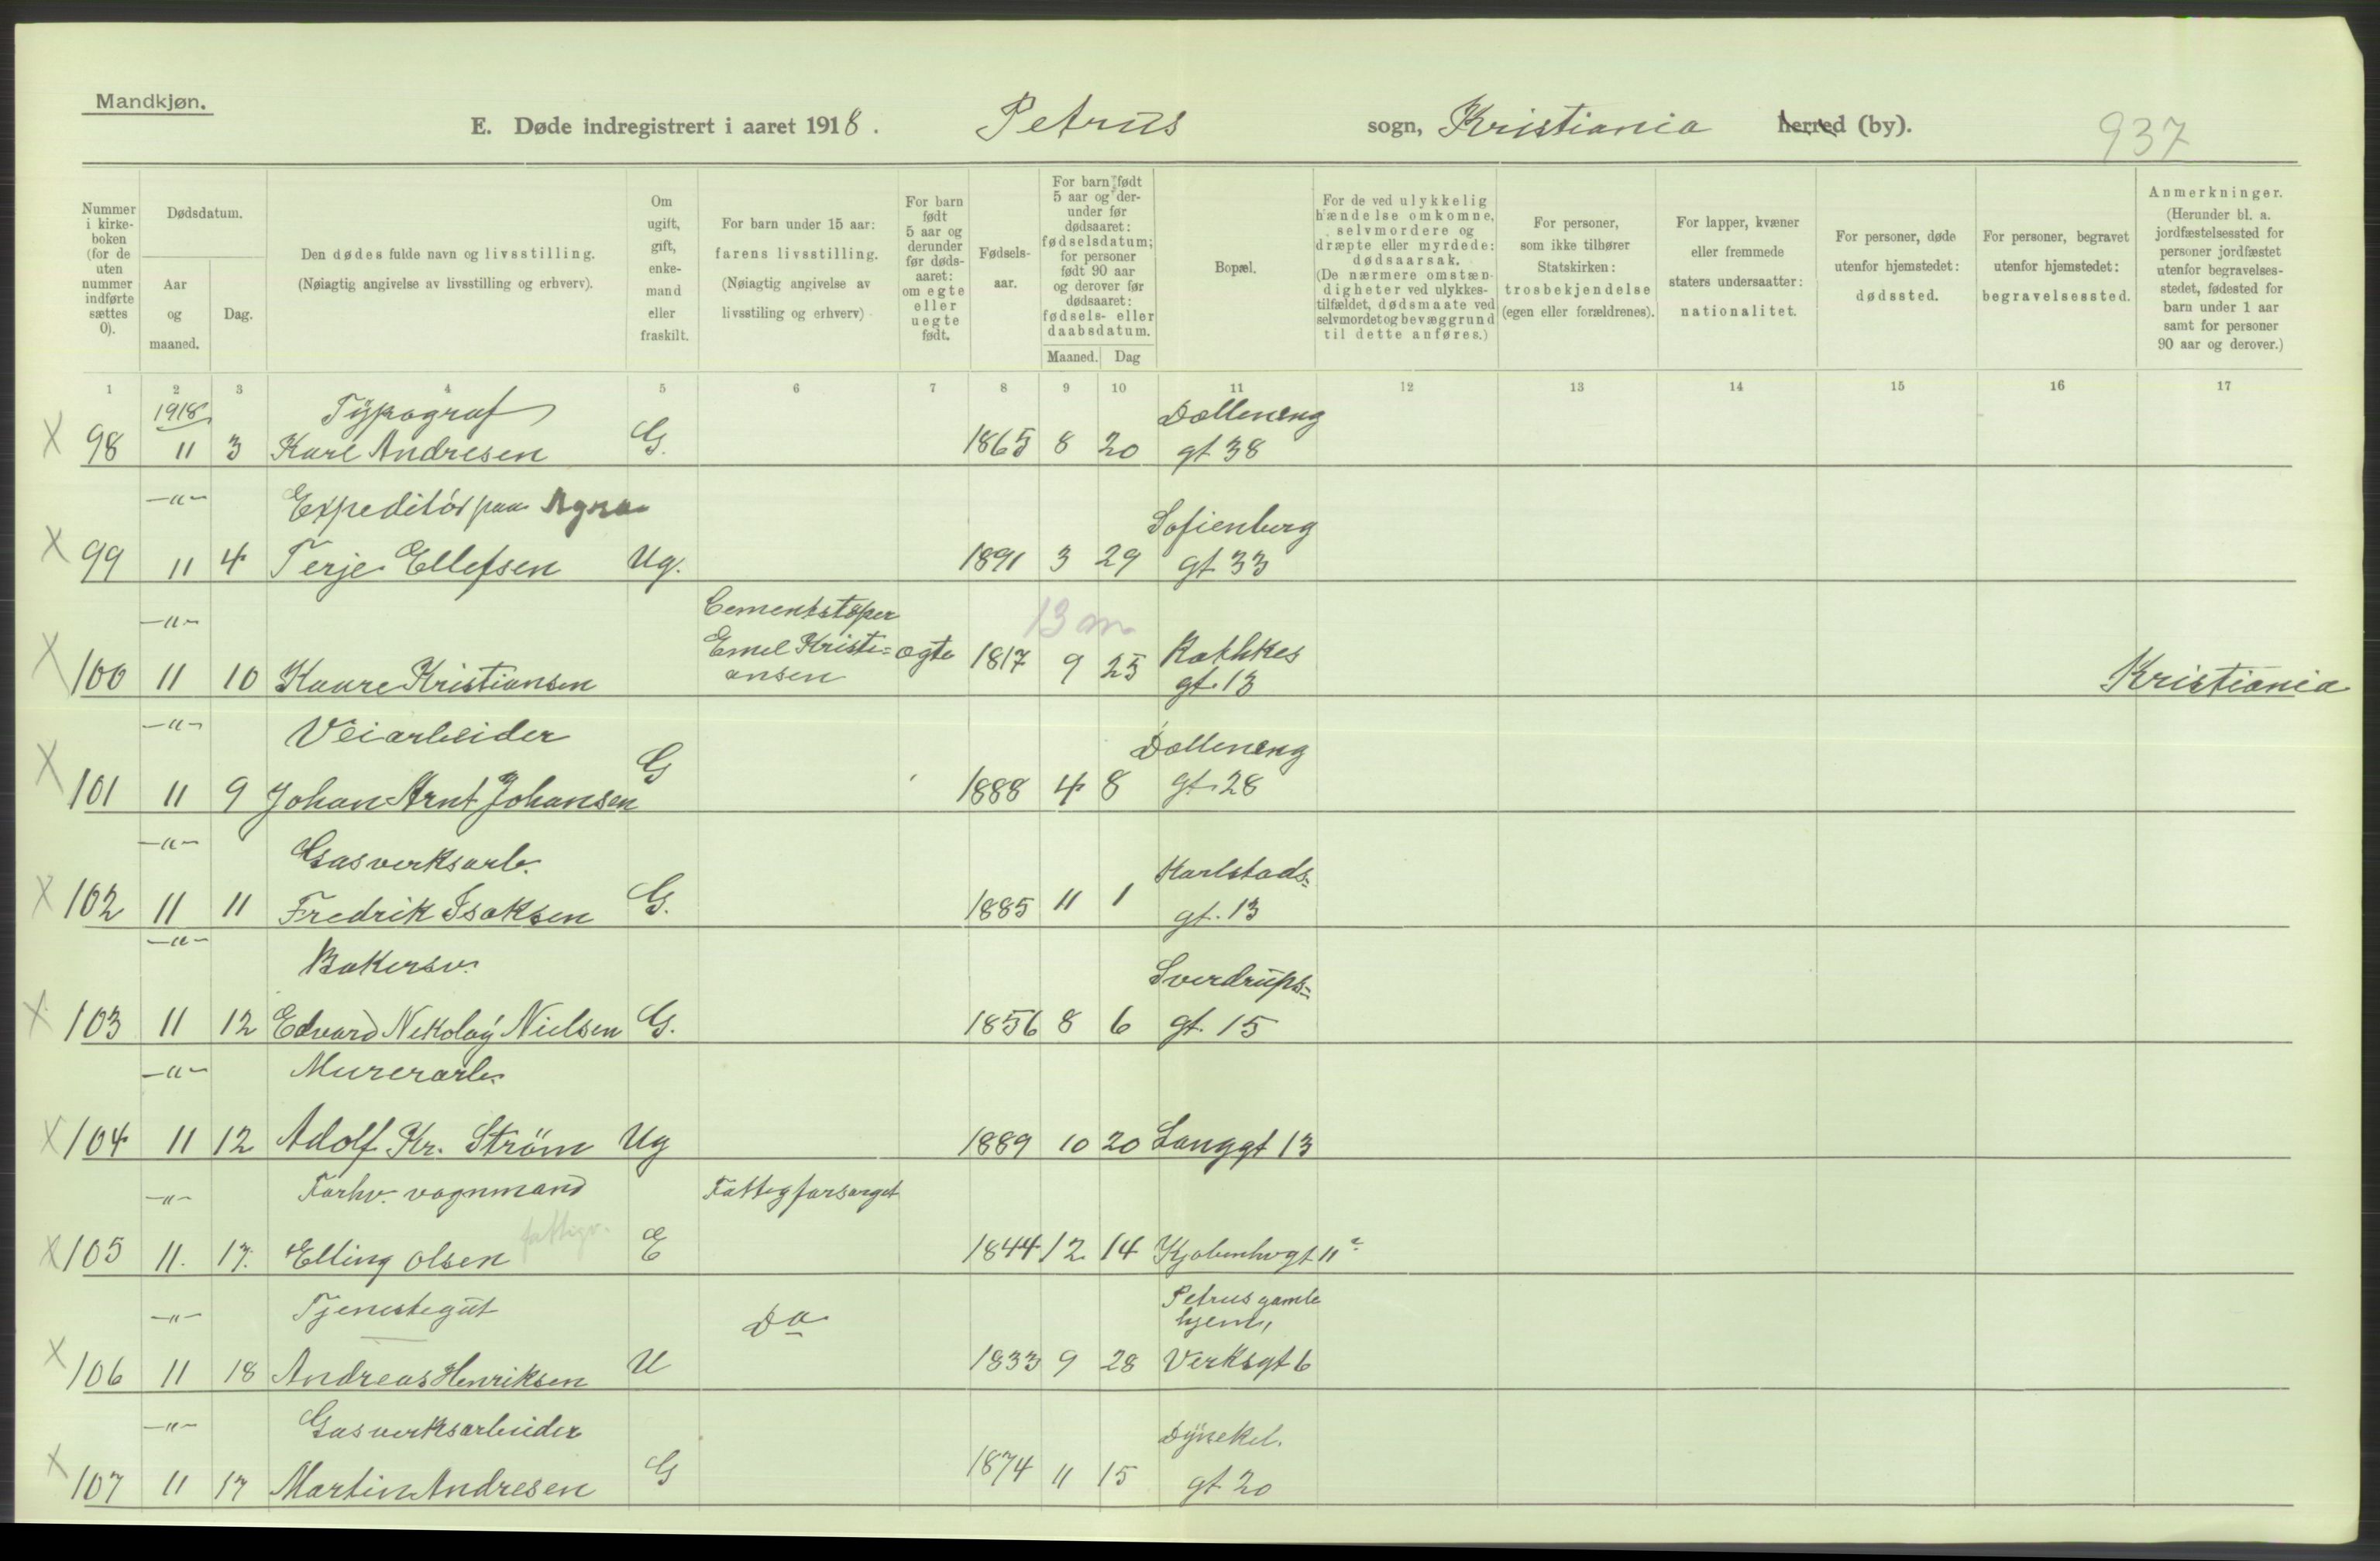 Mandkjøn.
E. Døde indregistrert i aaret 1918. Petrus sogn, Kristiania herred (by). 937
Nummer i kirke- boken (for de uten nummer indførte sættes 0).
Dødsdatum.
Aar og maaned.
Dag.
Den dødes fulde navn og livsstilling.
(Nøiagtig angivelse av livsstilling og erhverv).
Om ugift, gift, enke- mand eller fraskilt.
For barn under 15 aar: farens livsstilling.
(Nøiagtig angivelse av livsstiling og erhverv)
For barn født 5 aar og derunder før døds- aaret: om egte eller uegte født.
Fødsels- aar.
For barn født 5 aar og der- under før dødsaaret: fødselsdatum; for personer født 90 aar og derover før dødsaaret: fødsels- eller daabsdatum.
Maaned. Dag
Bopæl.
For de ved ulykkelig hændelse omkomne, selvmordere og dræpte eller myrdede: dødsaarsak.
(De nærmere omstæn- digheter ved ulykkes- tilfældet, dødsmaate ved selvmordet og bevæggrund til dette anføres.)
For personer, som ikke tilhører Statskirken: trosbekjendelse (egen eller forældrenes).
For lapper, kvæner eller fremmede staters undersaatter: nationalitet.
For personer, døde utenfor hjemstedet: dødssted.
For personer, begravet utenfor hjemstedet: begravelsessted.
Anmerkninger.
(Herunder bl. a. jordfæstelsessted for personer jordfæstet utenfor begravelses- stedet, fødested for barn under 1 aar samt for personer 90 aar og derover.)
1 2 3 4 5 6 7 8 9 10 11 12 13 14 15 16 17
1918 Typograf Dælleneng
X 98 11 3 Karl Andresen G. 1865 8 20 gt 38
-"- Expeditør paa Agra Sofienberg
X 99 11 4 Terje Ellefsen Ug. 1891 3 29 gt 33
-"- Cementstøper 13 m
Emil Kristi= ægte Rathkes
X 100 11 10 Kaare Kristiansen ansen 1817 9 25 gt. 13 Kristiania
-"- Veiarbeider Dælleneng
X 101 11 9 Johan Arnt Johansen G 1888 4 8 gt. 28
-"- Gasverksarb. Karlstads=
X 102 11 11 Fredrik Isaksen G. 1885 11 1 gt. 13
-"- Bakersv. Sverdrups=
X 103 11 12 Edvard Nikolay Nielsen G. 1856 8 6 gt. 15
-"- Murerarb.
X 104 11 12 Adolf Kr. Strøm Ug 1889 10 20 Langgt 13
-"- Forhv. vognmand Fattigforsørget
X 105 11. 17. Elling Olsen fattigv. E 1844 12 14 Kjøbenhvgt 11
-"- Tjenestegut Do Petrus gamle hjem,
X 106 11 18 Andreas Henriksen U 1833 9 28 Verksgt 6
-"- Gasverksarbeider Dynekil.
X 107 11 17 Martin Andresen G 1874 11 15 gt 20